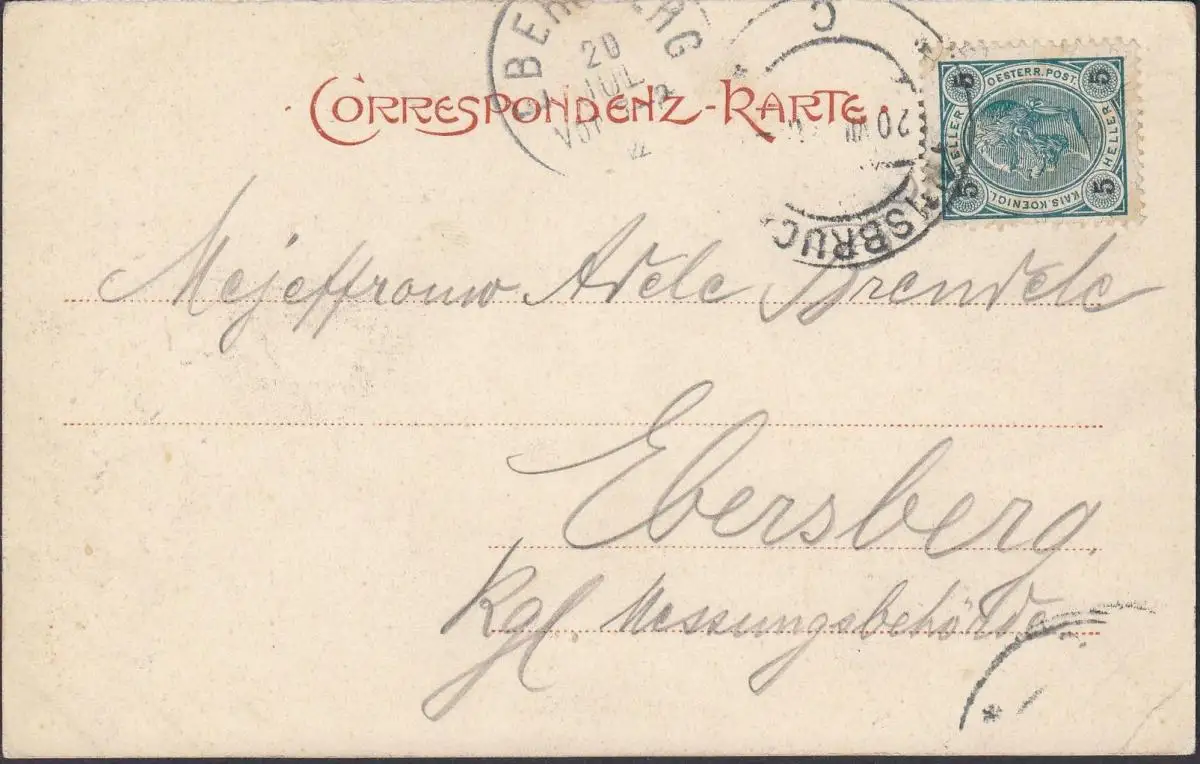 CORRESPONDENZ-KARTE.
EBERSBERG
20
JUL
OESTERR. POST.
5 5
HELLER HELLER
KAIS. KOENIGL
5 5
20
C
Mejeffrouw Adele Brendele
Ebersberg
Kgl. Messungsbehörde